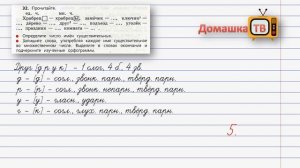 32. Прочитайте.
ед. ч. мн. ч.
Хребет – хребты, замочек – ..., ключик –
..., дерево – ..., ... – ...
Определите число имён существительных.
Запишите слова, употребляя каждое имя существительное
во множественном числе. Выделите в словах окончания и
подчеркните изученные орфограммы.
Домашка
ТВ
Друг [д р у к] – 1 слог, 4 б., 4 зв.
д – [д] – согл., звонк. парн., твёрд. парн.
р – [р] – согл., звонк. непарн., твёрд. парн.
у – [у] – гласн., ударн.
г – [к] – согл., глух. парн., твёрд. парн.
5